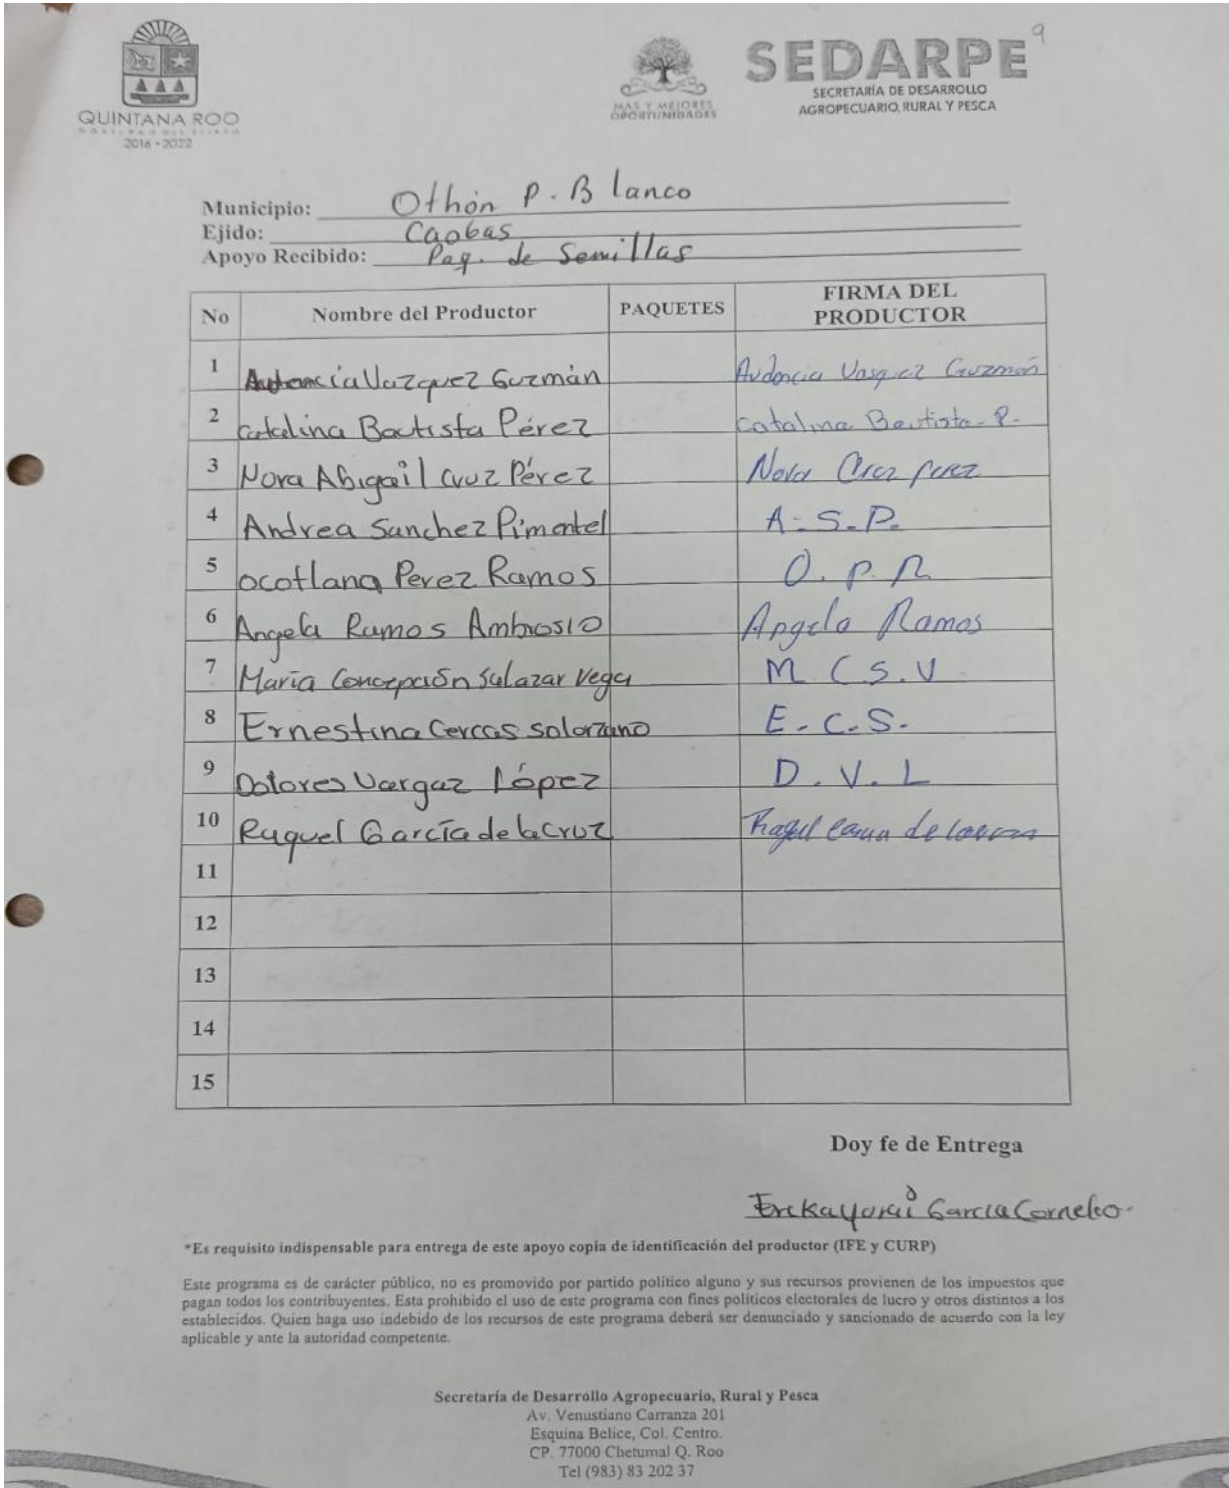 9
QUINTANA ROO
GOBIERNO DEL ESTADO
2016 • 2022
MAS Y MEJORES
OPORTUNIDADES
SEDARPE
SECRETARÍA DE DESARROLLO
AGROPECUARIO, RURAL Y PESCA
Municipio: Othón P. Blanco
Ejido: Caobas
Apoyo Recibido: Paq. de Semillas
No Nombre del Productor PAQUETES FIRMA DEL PRODUCTOR
1 Audencia Vazquez Guzmán Audencia Vasquez Guzmán
2 Catalina Bautista Pérez Catalina Bautista P.
3 Nora Abigail Cruz Pérez Nora Cruz perez
4 Andrea Sanchez Pimentel A.S.P.
5 Ocotlana Perez Ramos O.P.R
6 Angela Ramos Ambrosio Angela Ramos
7 María Concepción Salazar Vega M.C.S.V
8 Ernestina Cercas Solorzano E.C.S.
9 Dolores Vargaz López D.V.L
10 Raquel García de la Cruz
11
12
13
14
15
Doy fe de Entrega
García Cornelio
*Es requisito indispensable para entrega de este apoyo copia de identificación del productor (IFE y CURP)
Este programa es de carácter público, no es promovido por partido político alguno y sus recursos provienen de los impuestos que
pagan todos los contribuyentes. Esta prohibido el uso de este programa con fines políticos electorales de lucro y otros distintos a los
establecidos. Quien haga uso indebido de los recursos de este programa deberá ser denunciado y sancionado de acuerdo con la ley
aplicable y ante la autoridad competente.
Secretaría de Desarrollo Agropecuario, Rural y Pesca
Av. Venustiano Carranza 201
Esquina Belice, Col. Centro.
CP. 77000 Chetumal Q. Roo
Tel (983) 83 202 37